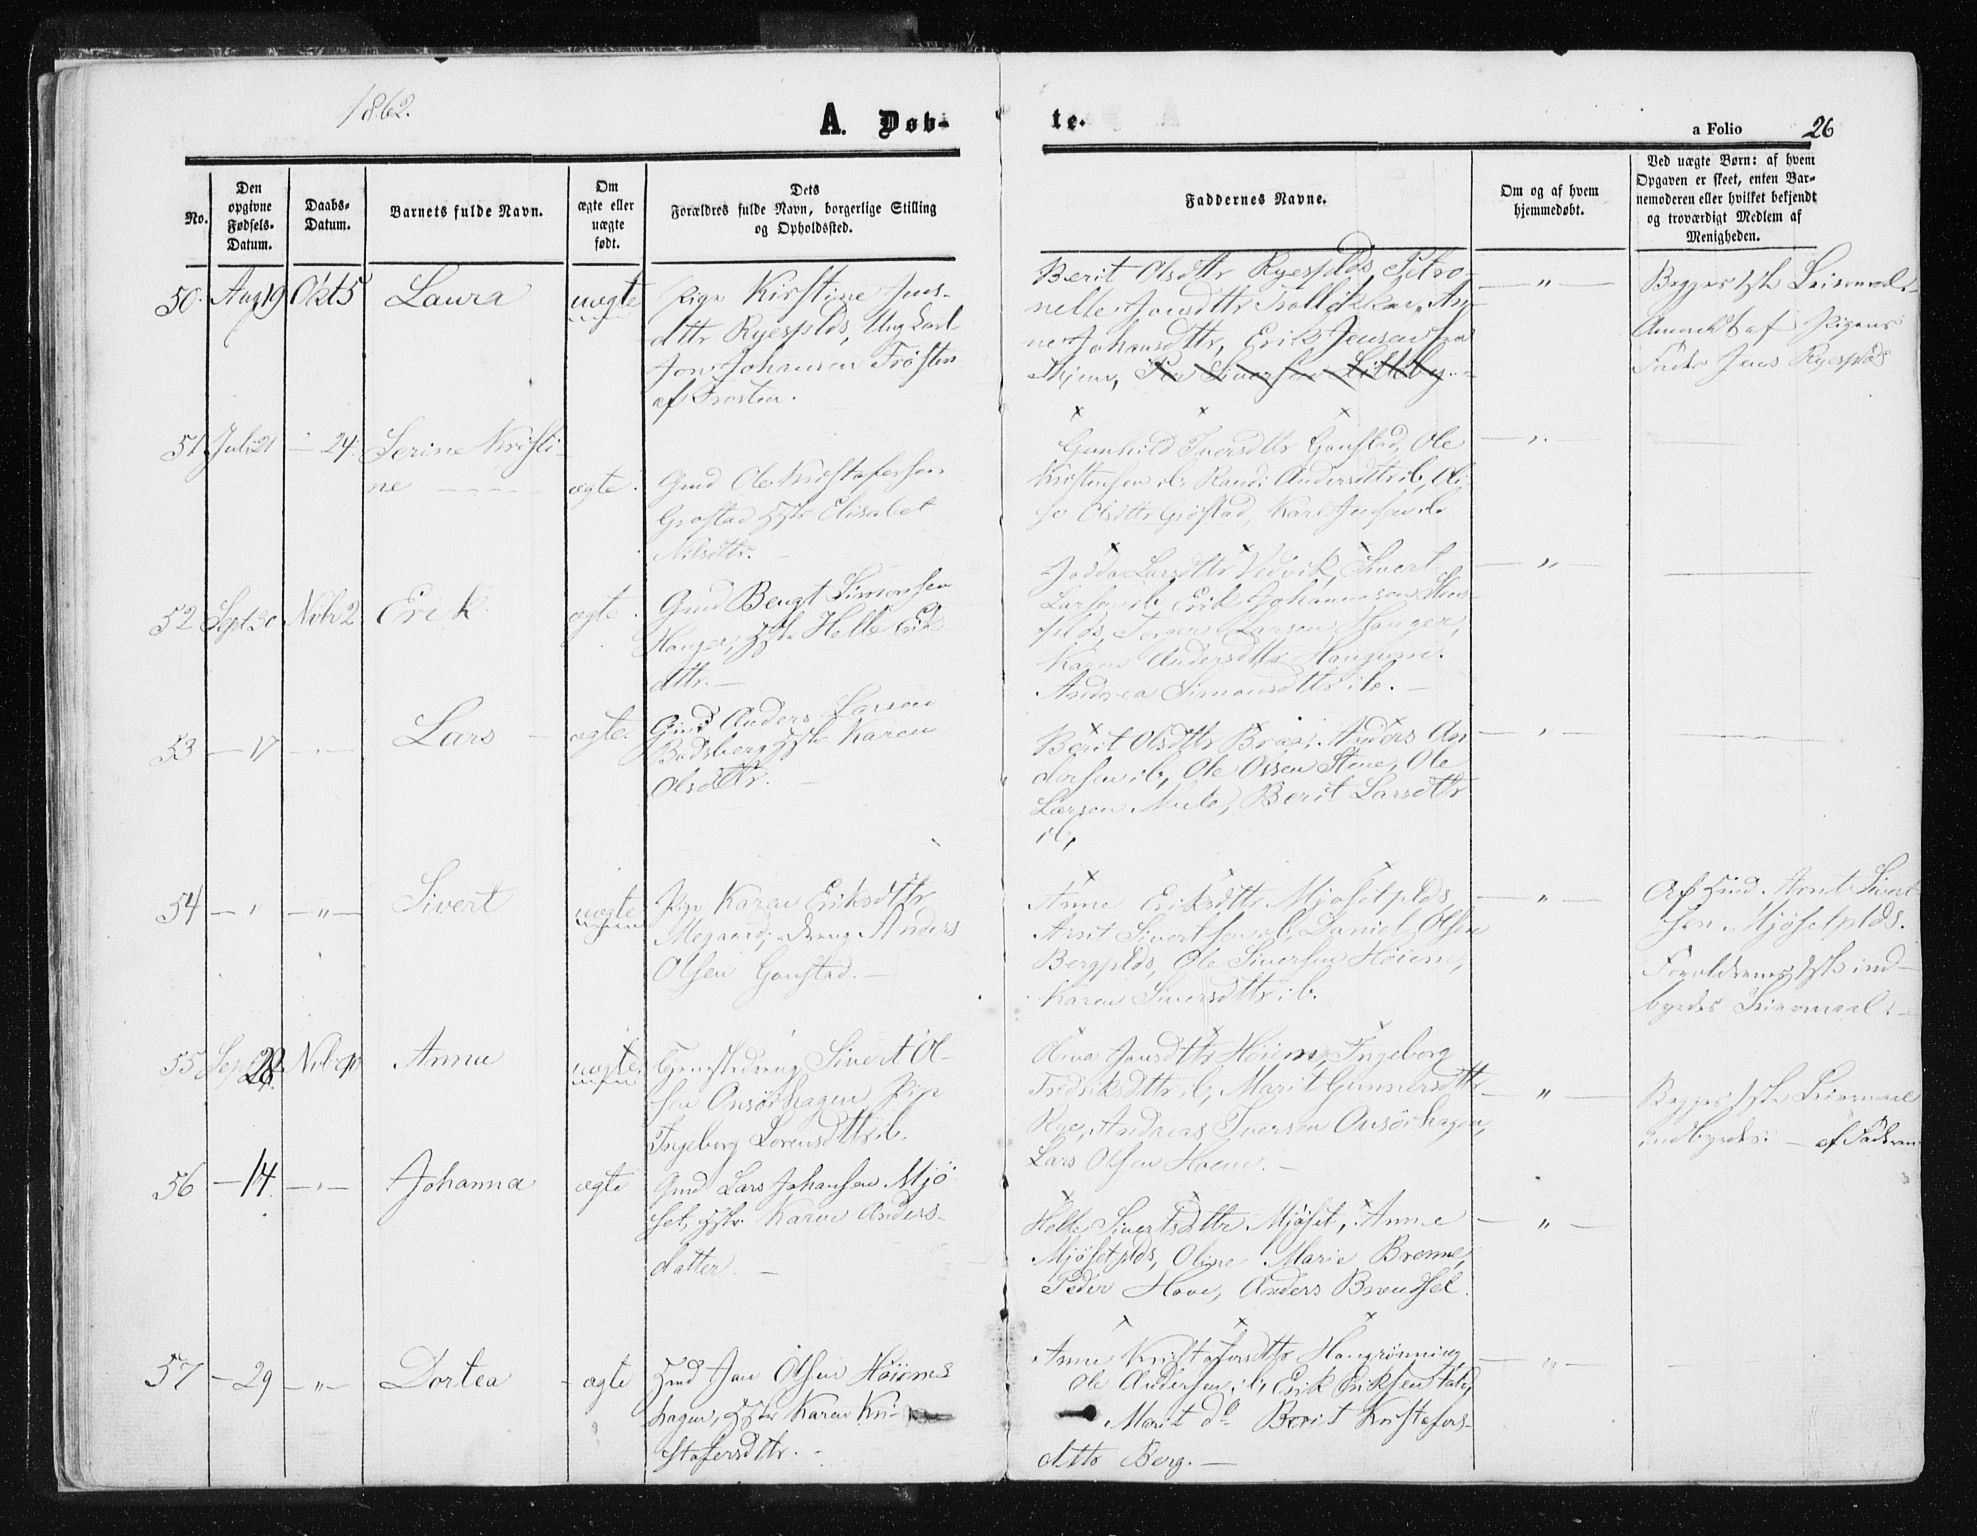 1862.
A. Døb-
te.
a Folio
26
No.
Den
opgivne
Fødsels-
Datum.
Daabs-
Datum.
Barnets fulde Navn.
Om
ægte eller
uægte
født.
Dets
Forældres fulde Navn, borgerlige Stilling
og Opholdssted.
Faddernes Navne.
Om og af hvem
hjemmedøbt.
Ved uægte Børn: af hvem
Opgaven er skeet, enten Bar-
nemoderen eller hvilket bekjendt
og troværdigt Medlem af
Menigheden.
50. Aug 19 Okt 5 Laura uægte
Pige Kirstine Jens-
dttr Ryesplds, Ung Karl
Jon Johansen Trøsten
af Frosten.
Berit Olsdttr Ryesplds, Petro-
nelle Jonsdttr An-
ne Johansdttr, Erik Jensen
"
Begges 1ste Leiermaal.
Anmeldt af Pigens
Fader Jens Ryesplds
51 Juli 21 - 24. Serine Kristi-
ne ægte.
Gmd Ole Kristofersen
Grøstad Hstr Elisabet
Nilsdttr.
Gunhild Iversdttr Gonstad, Ole
Kristensen ib, Randi Andersdttr ib, Eli-
se Olsdttr Grøstad, Karl Jensen ib
52 Sept 20 Nvbr 2 Erik ægte.
Gmd Bengt Simonsen
Hauger, Hstr Helle Eriks
dttr.
Larsdttr Vedvik, Sivert
Larsen ib, Erik Johannesen
plds, Torger Larsen Hauger,
Karen Andersdttr
Andrea Simonsdttr ib.
"
53 - 17 Lars ægte.
Gmd Anders Larsen
Badsberg Hstr Karen
Olsdttr.
Berit Olsdttr Anders An
dersen ib, Ole Olsen Stene, Ole
Larsen Berit Larsdttr
ib,
54 - " - " - Sivert uægte
Pige Karen Eriksdttr
Megaard, dreng Anders
Olsen Gonstad.
Anne Eriksdttr Mjøsetplds,
Arnt Sivertsen ib, Daniel Olsen
Bergplds, Ole Siversen Høiem,
Karen Siversdttr ib.
"
Af Hmd Arnt Sivert
sen Mjøsetplds.
Forældrenes 1ste ind-
byrdes Leiermaal.
55 Sept 28. Nvbr 9 Anna uægte.
Tjenestedreng Sivert Ol-
sen Onsøihagen, Pige
Ingeborg Lorensdttr ib.
Jonsdttr Høiem, Ingeborg
Fredriksdttr ib, Marit Gunnersdttr
Rye, Andreas Iversen Onsøihagen,
Lars Olsen
"
Begges 1ste Leiermaal
indbyrdes. - af Faderen
56 - 14. Johanna ægte
Gmd Lars Johansen Mjø
set, Hstr. Karen Anders-
datter
Helle Sivertsdttr Mjøset, Anne
Mjøsetplds, Oline Marie Brenne,
Peder Hove, Anders Brendsel.
"
57 - 29 - " - Dortea ægte
Hmd Jan Olsen Høiems
hagen, Hstr Karen Kri-
stofersdttr.
Anne Kristofersdttr Haugrønning
Ole Andersen ib, Erik Eriksen
Marit do Berit Kristofers-
dttr Berg.
"